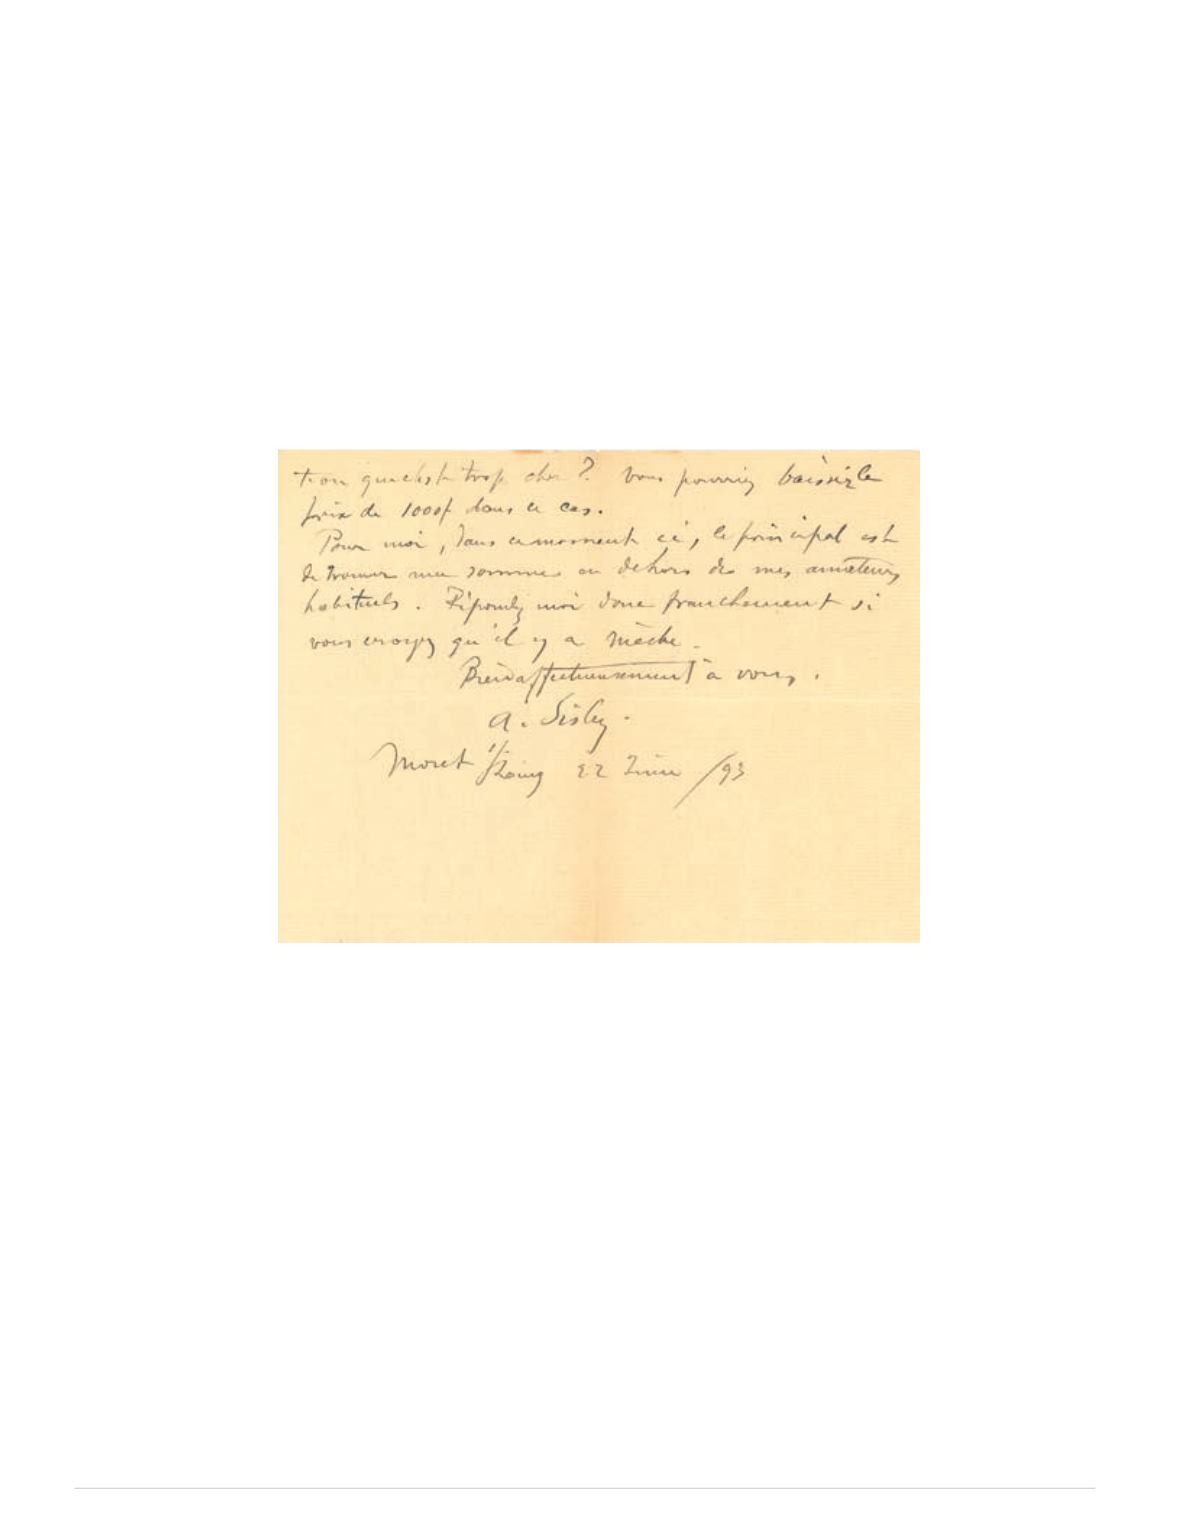 t-on que c'est trop cher ? Vous pourriez baisser le
prix de 1000f dans ce cas.
Pour moi, dans ce moment ci, le principal est
de trouver une somme en dehors de mes amateurs
habituels. Répondez moi donc franchement si
vous croyez qu'il y a mèche.
Bien affectueusement à vous.
A. Sisley.
Moret s/Loing 22 Juin /93